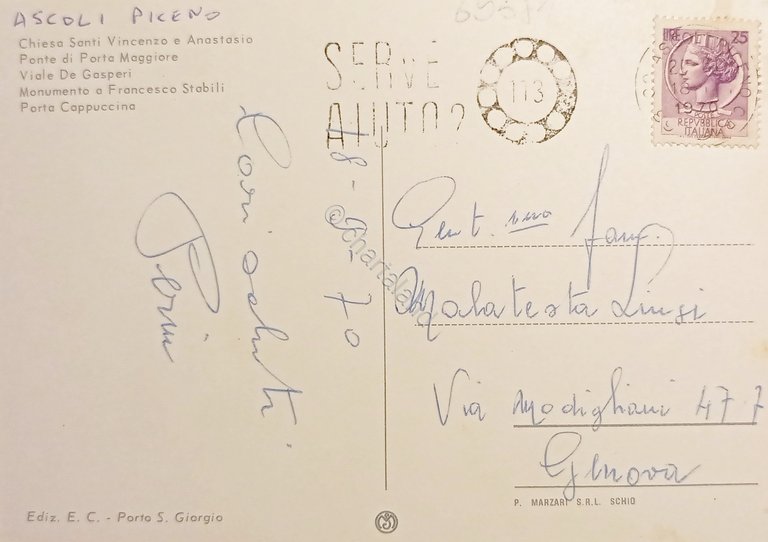 ASCOLI PICENO
Chiesa Santi Vincenzo e Anastasio
Ponte di Porta Maggiore
Viale De Gasperi
Monumento a Francesco Stabili
Porta Cappuccina
SERVE
AIUTO?
113
25
1970
REPUBBLICA
ITALIANA
Cari saluti
18-9-70
©Chartaland
Gent.ma Fam.
Malatesta Luigi
Via Modigliani 47 7
Genova
Ediz. E. C. - Porto S. Giorgio
P. MARZARI S.R.L. SCHIO